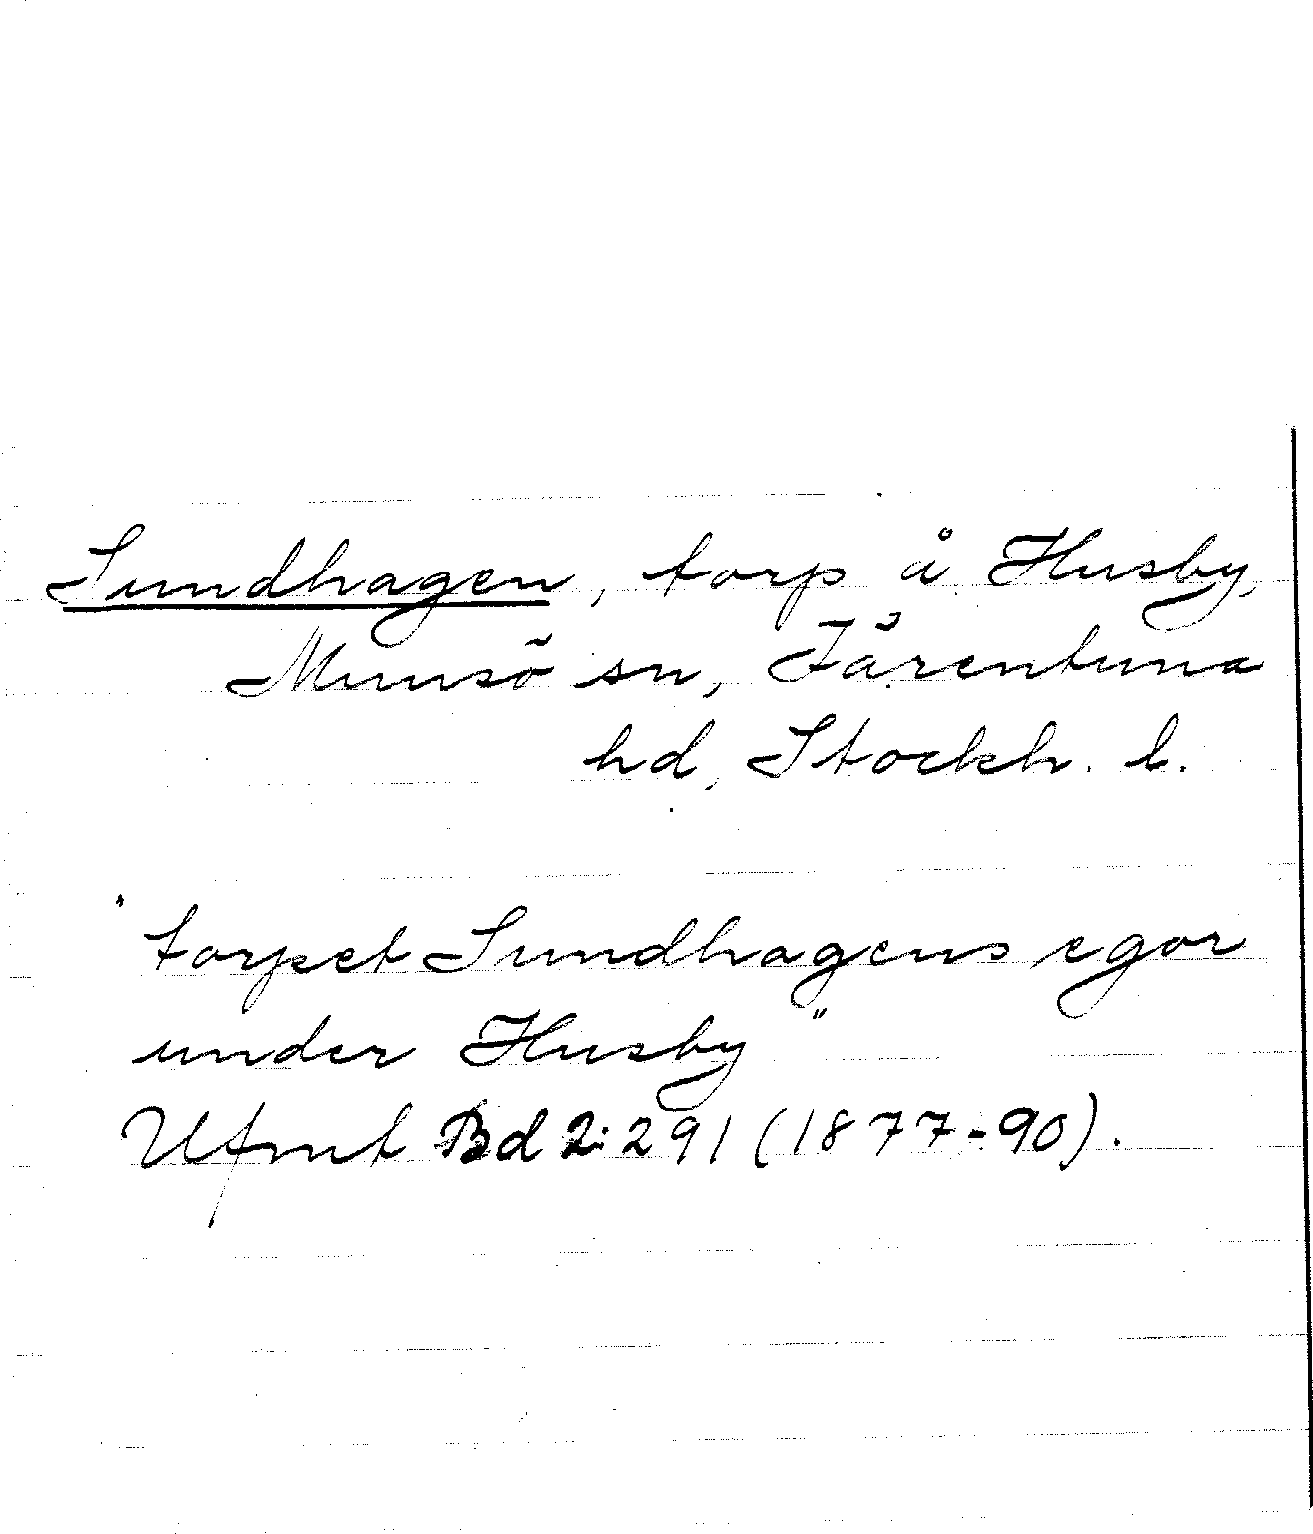 Sundhagen, torp å Husby,
Munsö sn, Färentuna
hd, Stockh. l.
"torpet Sundhagens egor
under Husby"
Ufmt Bd 2:291 (1877-90).